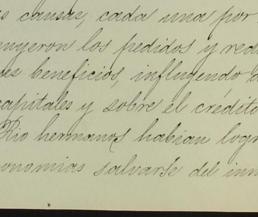 s causas, cada una por
nuyeron los pedidos y red
es beneficios, influyendo
capitales y sobre el crédito
Rio hermanos habian logr
onomias salvarse del inm